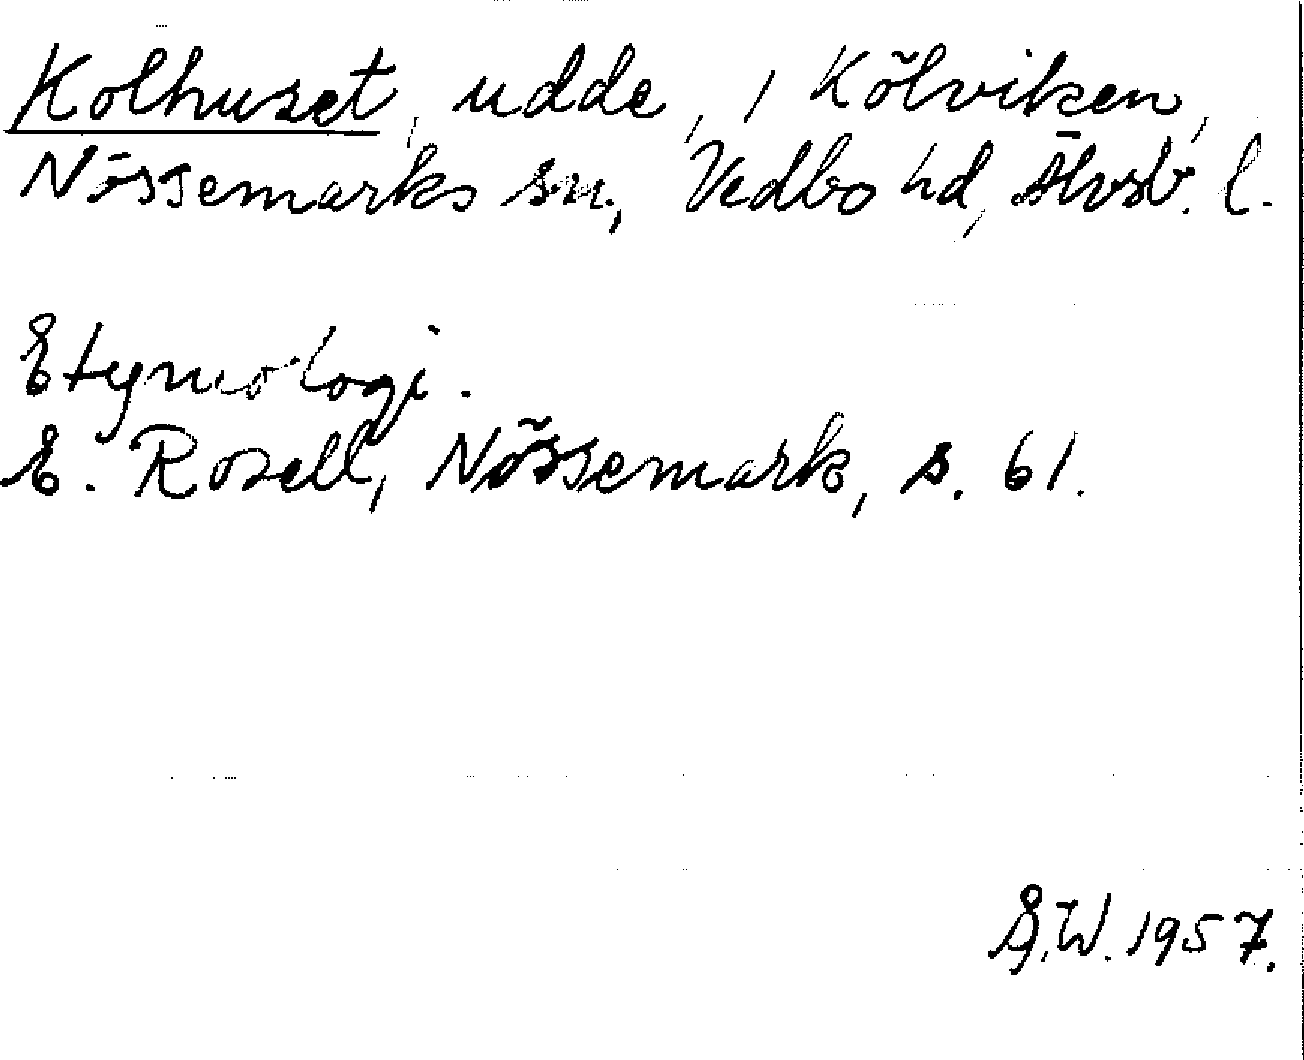 Kolhuset, udde, i Kölviken,
Nössemarks sn., Vedbo hd, Älvsb. l.
Etymologi.
E. Rosell, Nössemark, s. 61.
Å.W. 1957.